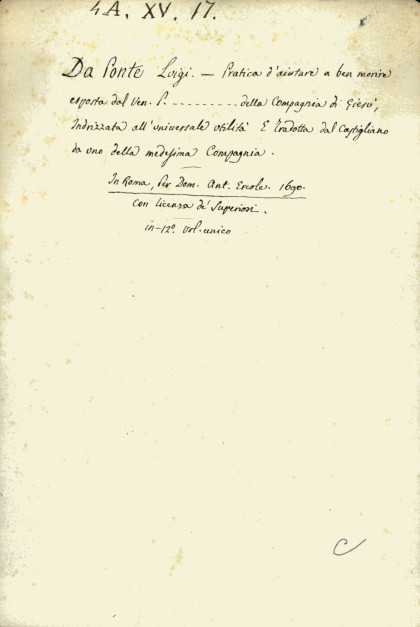 4A. XV. 17.
Da Ponte Luigi. — Pratica d'aiutare a ben morire
esposta dal Ven. P. - - - - - - - - - della Compagnia di Giesù,
Indrizzata all'universale utilità E Tradotta dal Castigliano
da uno della medesima Compagnia.
In Roma, Per Dom. Ant. Ercole. 1690.
con licenza de' Superiori.
in-12.° vol. unico
C